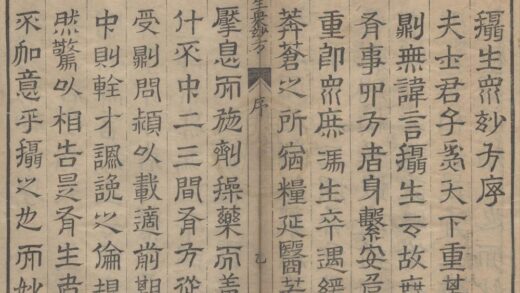 攝生眾妙方序
夫士君子天下重其
則無諱言攝生云故
有事四方者身繫安危
重即眾庶馮生卒遇經
莽蒼之所宿糧延醫
生眾妙方
序
乙
息而施劑操藥而善
什不中二三間有方從
受則問以載適前期
中則輇才諛說之倫規
然驚以相告是有生者
不加意乎攝之也而妙